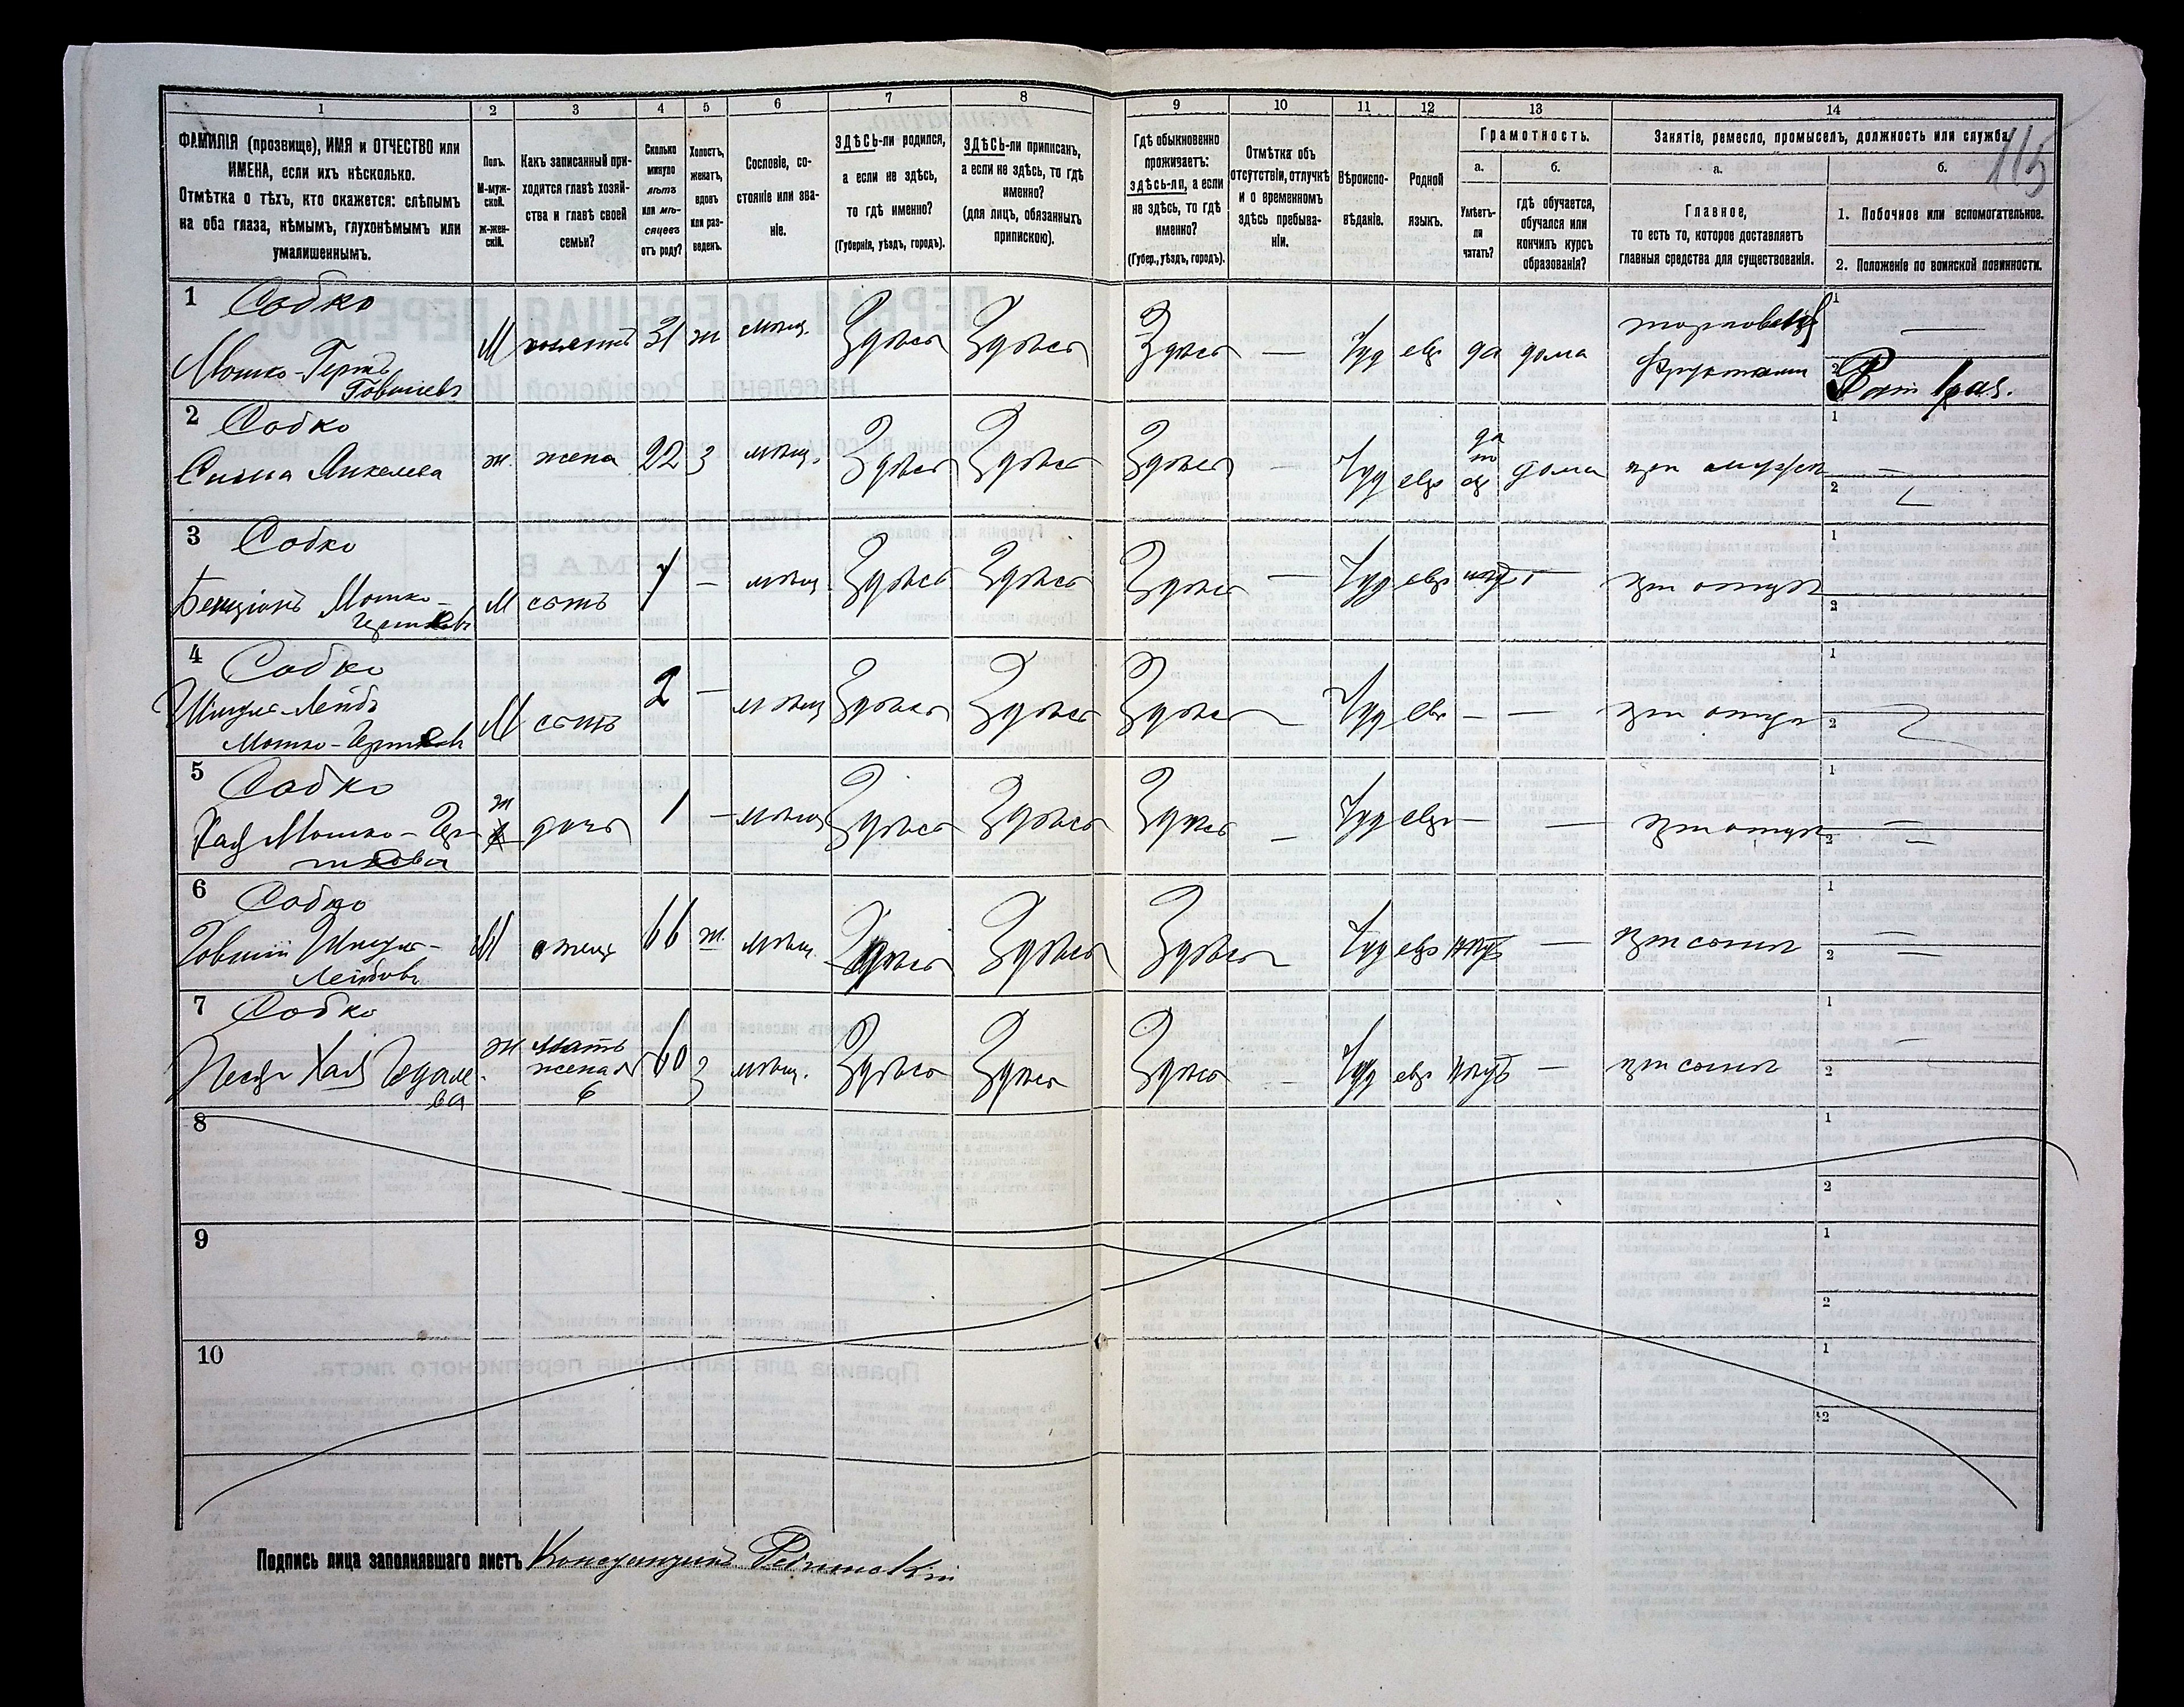 1 2 3 4 5 6 7 8 9 10 11 12 13 14
115
ФАМИЛІЯ (прозвище), ИМЯ и ОТЧЕСТВО или
ИМЕНА, если ихъ нѣсколько.
Отмѣтка о тѣхъ, кто окажется: слѣпымъ
на оба глаза, нѣмымъ, глухонѣмымъ или
умалишеннымъ.
Полъ.
М-муж-
ской.
ж-жен-
скій.
Какъ записанный при-
ходится главѣ хозяй-
ства и главѣ своей
семьи?
Сколько
минуло
лѣтъ
или мѣ-
сяцевъ
отъ роду?
Холостъ,
женатъ,
вдовъ
или раз-
веденъ.
Сословіе, со-
стояніе или зва-
ніе.
ЗДѢСЬ-ли родился,
а если не здѣсь,
то гдѣ именно?
(Губернія, уѣздъ, городъ).
ЗДѢСЬ-ли приписанъ,
а если не здѣсь, то гдѣ
именно?
(для лицъ, обязанныхъ
припискою).
Гдѣ обыкновенно
проживаетъ:
здѣсь-ли, а если
не здѣсь, то гдѣ
именно?
(Губер., уѣздъ, городъ).
Отмѣтка объ
отсутствіи, отлучкѣ
и о временномъ
здѣсь пребыва-
ніи.
Вѣроиспо-
вѣданіе.
Родной
языкъ.
Грамотность.
а.
Умѣетъ-
ли
читать?
б.
гдѣ обучается,
обучался или
кончилъ курсъ
образованія?
Занятіе, ремесло, промыселъ, должность или служба.
а.
Главное,
то есть то, которое доставляетъ
главныя средства для существованія.
б.
1. Побочное или вспомогательное.
2. Положеніе по воинской повинности.
1 Собко
Мошко-Гершъ
Говшіевъ
М хозяинъ 31 ж мѣщ. Здѣсь Здѣсь Здѣсь — Іуд евр да дома
торговецъ
фруктами
1 —
2 Рат 1 раз.
2 Собко
Сима Янкелева
ж. жена 22 З мѣщ. Здѣсь Здѣсь Здѣсь — Іуд евр
да
по
евр
дома при мужѣ
1 —
2
3 Собко
Бенціонъ Мошко-
Гершковъ
М сынъ 7 — мѣщ. Здѣсь Здѣсь Здѣсь — Іуд евр нѣтъ — при отцѣ
1
2
4 Собко
Шмуль-Лейбъ
Мошко-Гершковъ
М сынъ 2 — мѣщ Здѣсь Здѣсь Здѣсь — Іуд евр — — при отцѣ
1
2
5 Собко
Хая Мошко-Гер-
шкова
ж дочь 1 — мѣщ Здѣсь Здѣсь Здѣсь — Іуд евр — — при отцѣ
1 —
2 —
6 Собко
Говшій Шмуль-
Лейбовъ
М отецъ 66 ж. мѣщ. Здѣсь Здѣсь Здѣсь — Іуд евр нѣтъ — при сынѣ
1 —
2 —
7 Собко
Песя Хая Гедале-
ва
ж
мать
жена
6
60 З мѣщ. Здѣсь Здѣсь Здѣсь — Іуд евр нѣтъ — при сынѣ
1 —
2 —
8
1
2
9
1
2
10
1
2
Подпись лица заполнявшаго листъ